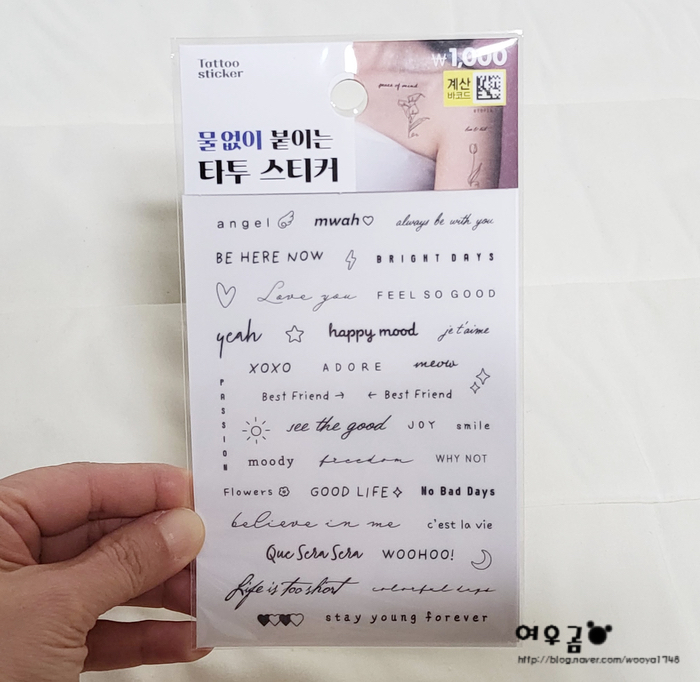 Tattoo
sticker
₩1,000
계산
바코드
peace of mind
물 없이 붙이는
타투 스티커
angel mwah always be with you
BE HERE NOW BRIGHT DAYS
Love you FEEL SO GOOD
yeah happy mood je t'aime
XOXO ADORE meow
PASSION
Best Friend → ← Best Friend
see the good JOY smile
moody freedom WHY NOT
Flowers GOOD LIFE No Bad Days
believe in me c'est la vie
Que Sera Sera WOOHOO!
Life is too short colorful days
stay young forever
여우곰
http://blog.naver.com/wooya1748